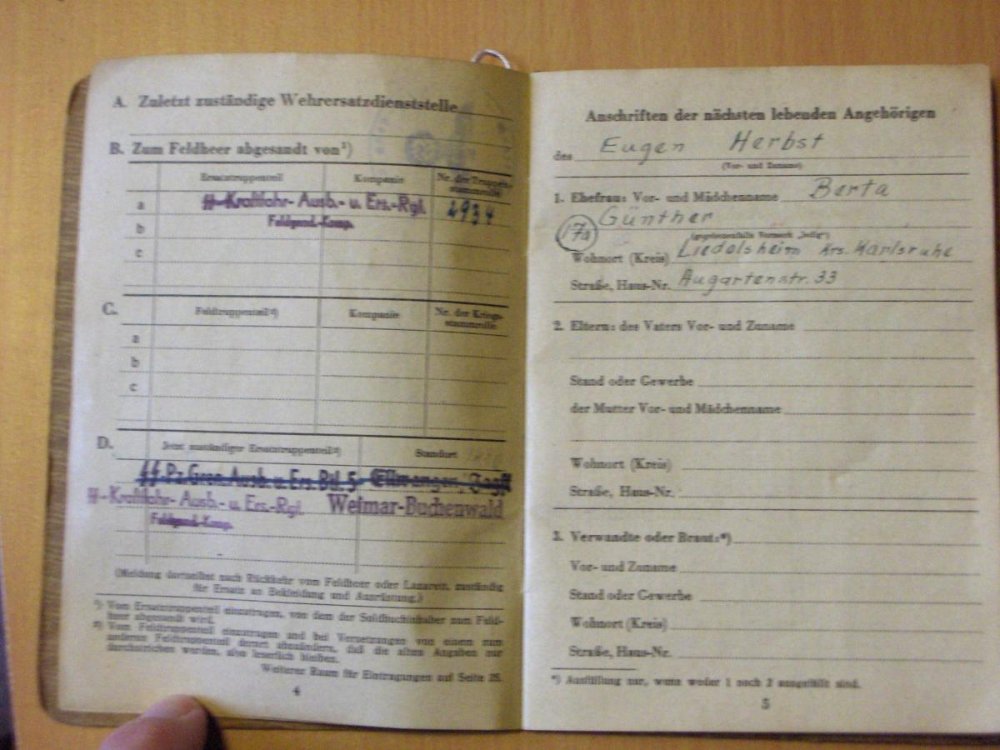 A. Zuletzt zuständige Wehrersatzdienststelle
B. Zum Feldheer abgesandt von¹)
Ersatztruppenteil Kompanie Nr. der Truppenstammrolle
a ᛋᛋ-Kraftfahr-Ausb.- u. Ers.-Rgt. 2934
Feldgend.-Komp.
b
c
C. Feldtruppenteil²) Kompanie Nr. der Kriegsstammrolle
a
b
c
D. Jetzt zuständiger Ersatztruppenteil²) Standort
ᛋᛋ-Pz.Gren.Ausb. u. Ers. Btl. 5 Ellwangen, Jagst
ᛋᛋ-Kraftfahr- Ausb.- u. Ers.-Rgt. Weimar-Buchenwald
Feldgend.-Komp.
(Meldung dortselbst nach Rückkehr vom Feldheer oder Lazarett, zuständig
für Ersatz an Bekleidung und Ausrüstung.)
¹) Vom Ersatztruppenteil einzutragen, von dem der Soldbuchinhaber zum Feld-
heer abgesandt wird.
²) Vom Feldtruppenteil einzutragen und bei Versetzungen von einem zum
anderen Feldtruppenteil derart abzuändern, daß die alten Angaben nur
durchstrichen werden, also leserlich bleiben.
Weiterer Raum für Eintragungen auf Seite 25.
4
Anschriften der nächsten lebenden Angehörigen
des Eugen Herbst
(Vor- und Zuname)
1. Ehefrau: Vor- und Mädchenname Berta
Günther
(gegebenenfalls Vermerk „ledig“)
17a
Wohnort (Kreis) Liedolsheim Krs. Karlsruhe
Straße, Haus-Nr. Augartenstr. 33
2. Eltern: des Vaters Vor- und Zuname
Stand oder Gewerbe
der Mutter Vor- und Mädchenname
Wohnort (Kreis)
Straße, Haus-Nr.
3. Verwandte oder Braut:*)
Vor- und Zuname
Stand oder Gewerbe
Wohnort (Kreis)
Straße, Haus-Nr.
*) Ausfüllung nur, wenn weder 1 noch 2 ausgefüllt sind.
5